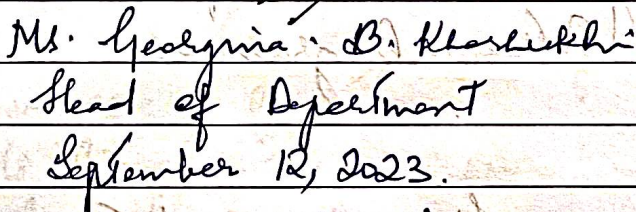 Ms. Georgina. B. Kharlukhi
Head of Department
September 12, 2023.